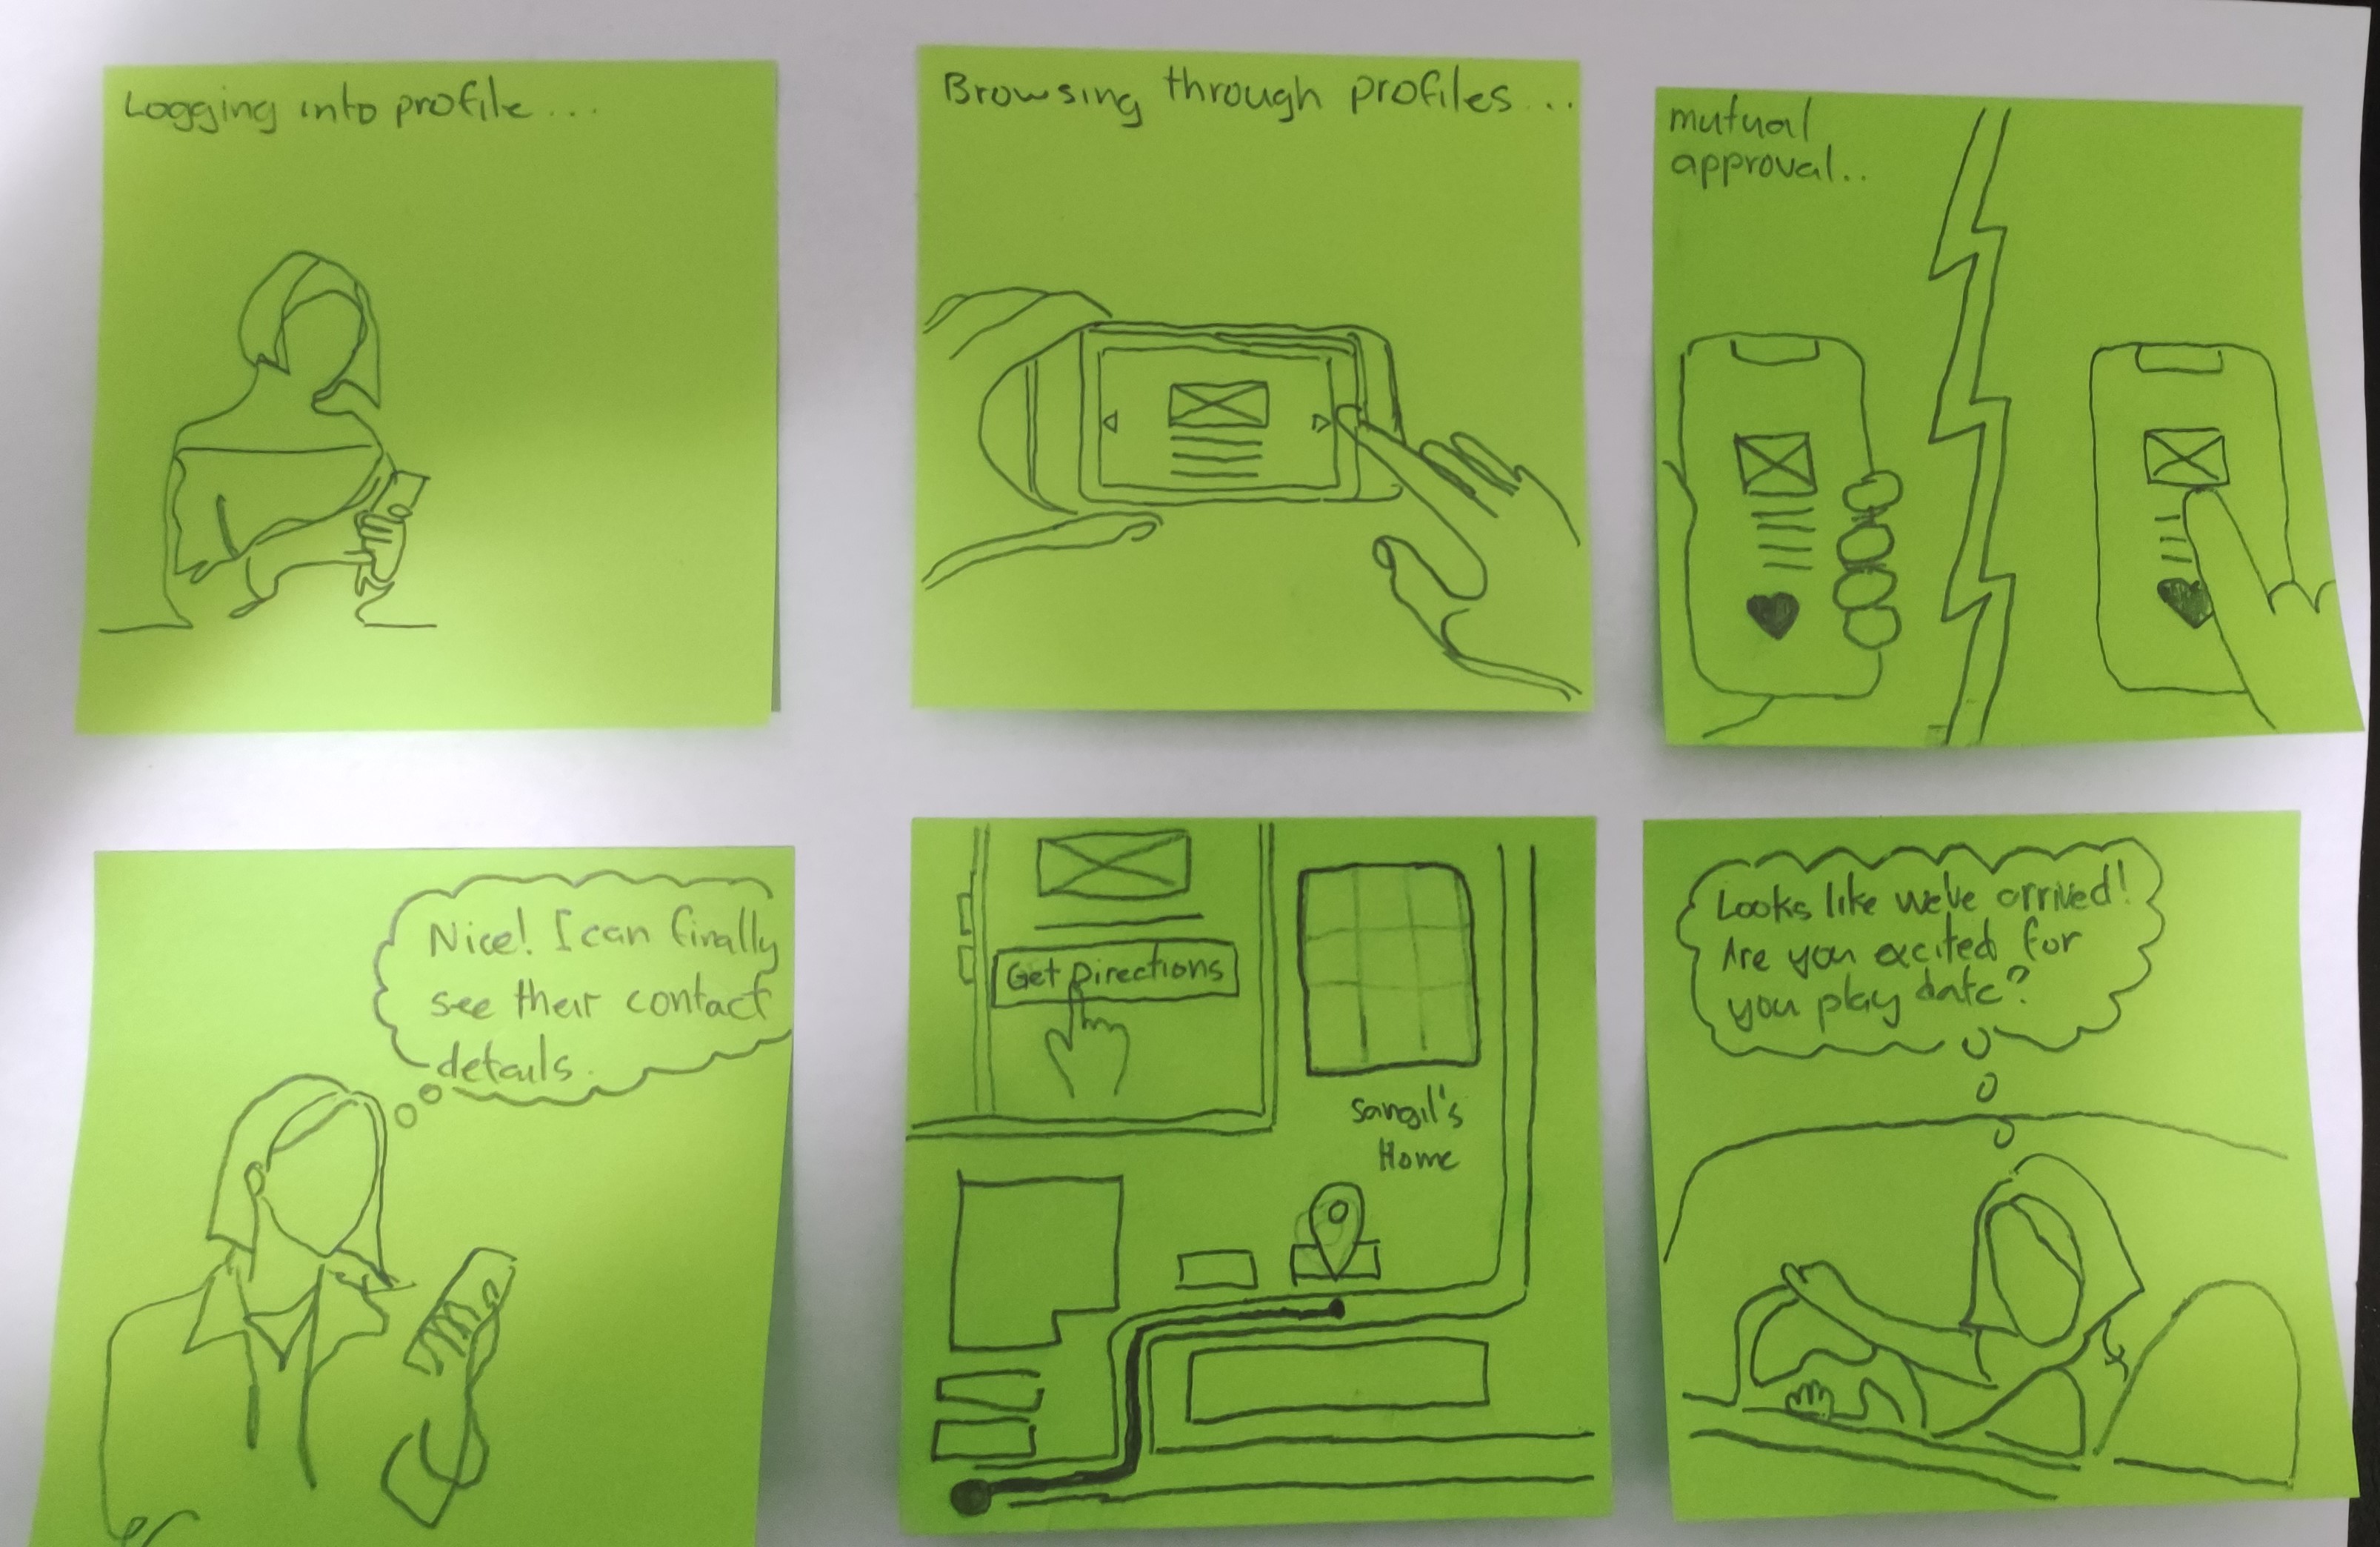 Logging into profile...
Browsing through profiles...
mutual
approval..
Nice! I can finally
see their contact
details.
Get Directions
Sangil's
Home
Looks like we've arrived!
Are you excited for
you play date?